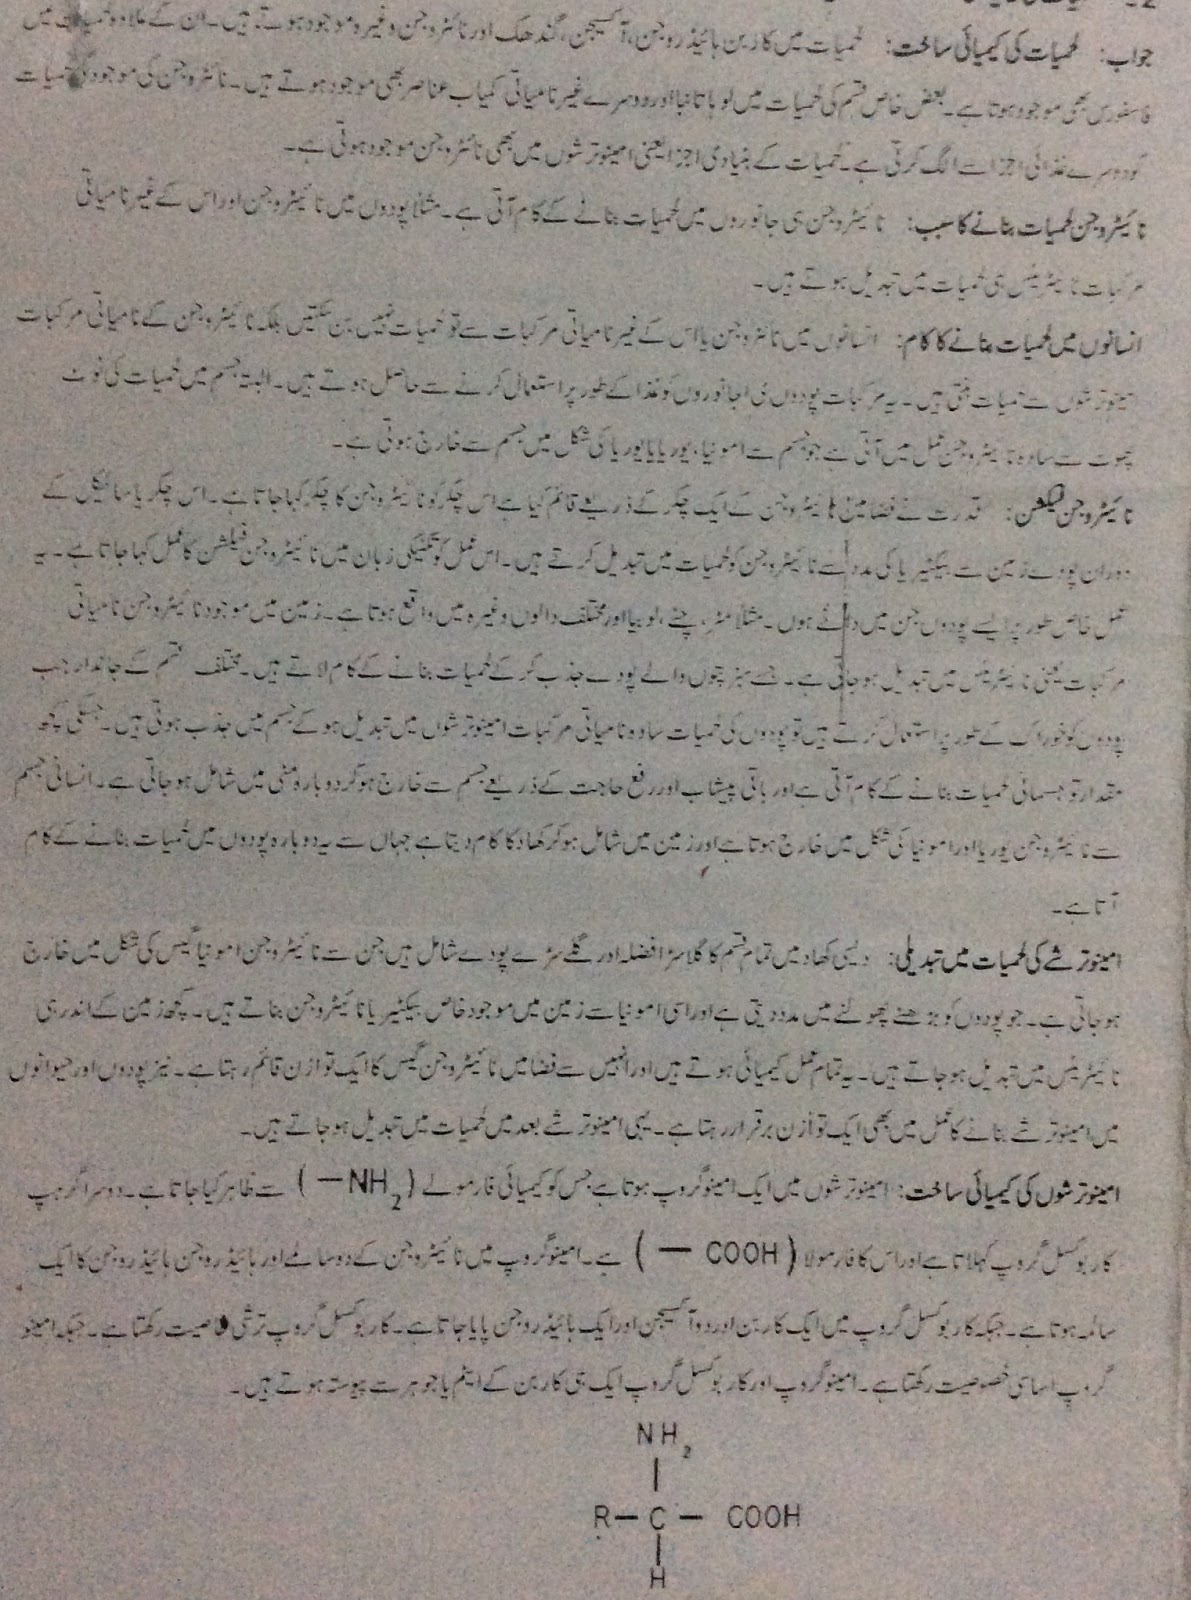 جواب: لحمیات کی کیمیائی ساخت: لحمیات میں کاربن ہائیڈروجن، آکسیجن، گندھک اور نائٹروجن وغیرہ موجود ہوتے ہیں۔ ان کے علاوہ لحمیات میں
فاسفورس بھی موجود ہوتا ہے۔ بعض خاص قسم کی لحمیات میں لوہا تانبا اور دوسرے غیر نامیاتی کمیاب عناصر بھی موجود ہوتے ہیں۔ نائٹروجن کی موجودگی لحمیات
کو دوسرے غذائی اجزا سے الگ کرتی ہے۔ لحمیات کے بنیادی اجزا یعنی امینو ترشوں میں بھی نائٹروجن موجود ہوتی ہے۔
نائیٹروجن لحمیات بنانے کا سبب: نائیٹروجن ہی جانوروں میں لحمیات بنانے کے کام آتی ہے۔ مثلاً پودوں میں نائیٹروجن اور اس کے غیر نامیاتی
مرکبات نائیٹریٹس ہی لحمیات میں تبدیل ہوتے ہیں۔
انسانوں میں لحمیات بنانے کا کام: انسانوں میں نائٹروجن یا اس کے غیر نامیاتی مرکبات سے تو لحمیات نہیں بن سکتیں بلکہ نائیٹروجن کے نامیاتی مرکبات
امینو ترشوں سے لحمیات بنتی ہیں۔ یہ مرکبات پودوں اور جانوروں کو غذا کے طور پر استعمال کرنے سے حاصل ہوتے ہیں۔ البتہ جسم میں لحمیات کی ٹوٹ
پھوٹ سے سادہ نائیٹروجن عمل میں آتی ہے جو جسم سے امونیا، یوریا یا یوریا کی شکل میں جسم سے خارج ہوتی ہے۔
نائیٹروجن فیکشن: قدرت نے فضا میں نائیٹروجن کے ایک چکر کے ذریعے قائم کیا ہے اس چکر کو نائیٹروجن کا چکر کہا جاتا ہے۔ اس چکر یا سائیکل کے
دوران پودے زمین سے بیکٹیریا کی مدد سے نائیٹروجن کو لحمیات میں تبدیل کرتے ہیں۔ اس عمل کو تکنیکی زبان میں نائیٹروجن فیکشن کا عمل کہا جاتا ہے۔ یہ
عمل خاص طور پر ایسے پودوں جن میں دانے ہوں۔ مثلاً مٹر، چنے، لوبیا اور مختلف دالوں وغیرہ میں واقع ہوتا ہے۔ زمین میں موجود نائیٹروجن نامیاتی
مرکبات یعنی نائیٹریٹس میں تبدیل ہو جاتی ہے۔ جسے سبز پتوں والے پودے جذب کر کے لحمیات بنانے کے کام لاتے ہیں۔ مختلف قسم کے جاندار جب
پودوں کو خوراک کے طور پر استعمال کرتے ہیں تو پودوں کی لحمیات سادہ نامیاتی مرکبات امینو ترشوں میں تبدیل ہو کے جسم میں جذب ہوتی ہیں۔ جسکی کچھ
مقدار تو جسمانی لحمیات بنانے کے کام آتی ہے اور باقی پیشاب اور رفع حاجت کے ذریعے جسم سے خارج ہو کر دوبارہ مٹی میں شامل ہو جاتی ہے۔ انسانی جسم
سے نائیٹروجن یوریا اور امونیا کی شکل میں خارج ہوتا ہے اور زمین میں شامل ہو کر کھاد کا کام دیتا ہے جہاں سے یہ دوبارہ پودوں میں لحمیات بنانے کے کام
آتا ہے۔
امینو ترشے کی لحمیات میں تبدیلی: دیسی کھاد میں تمام قسم کا گلا سڑا فضلہ اور گلے سڑے پودے شامل ہیں جن سے نائیٹروجن امونیا گیس کی شکل میں خارج
ہو جاتی ہے۔ جو پودوں کو بڑھنے پھولنے میں مدد دیتی ہے اور اسی امونیا سے زمین میں موجود خاص بیکٹیریا نائیٹروجن بناتے ہیں۔ کچھ زمین کے اندر ہی
نائیٹریٹس میں تبدیل ہو جاتے ہیں۔ یہ تمام عمل کیمیائی ہوتے ہیں اور انہیں سے فضا میں نائیٹروجن گیس کا ایک توازن قائم رہتا ہے۔ نیز پودوں اور حیوانوں
میں امینو ترشے بنانے کا عمل میں بھی ایک توازن برقرار رہتا ہے۔ یہی امینو ترشے بعد میں لحمیات میں تبدیل ہو جاتے ہیں۔
امینو ترشوں کی کیمیائی ساخت: امینو ترشوں میں ایک امینو گروپ ہوتا ہے جس کو کیمیائی فارمولے (—NH2) سے ظاہر کیا جاتا ہے۔ دوسرا گروپ
کاربوکسل گروپ کہلاتا ہے اور اس کا فارمولا (— COOH) ہے۔ امینو گروپ میں نائیٹروجن کے دو سالمے اور ہائیڈروجن ہائیڈروجن کا ایک
سالمہ ہوتا ہے۔ جبکہ کاربوکسل گروپ میں ایک کاربن اور دو آکسیجن اور ایک ہائیڈروجن پایا جاتا ہے۔ کاربوکسل گروپ ترشی خاصیت رکھتا ہے۔ جبکہ امینو
گروپ اساسی خصوصیت رکھتا ہے۔ امینو گروپ اور کاربوکسل گروپ ایک ہی کاربن کے ایٹم یا جوہر سے پیوستہ ہوتے ہیں۔
NH2
R— C — COOH
H